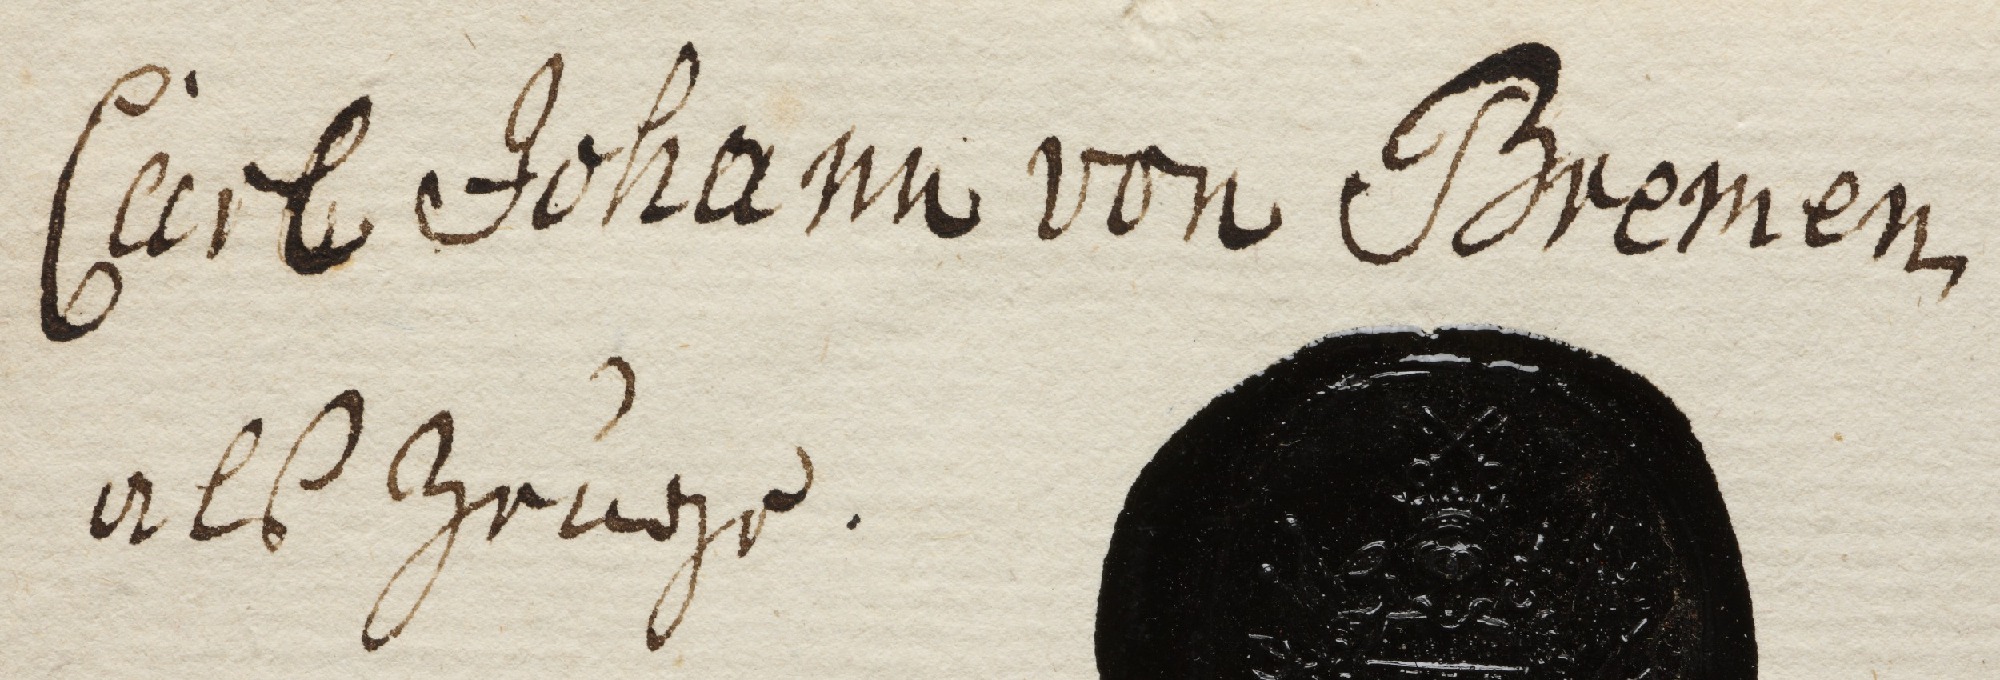 Carl Johann von Bremen
alß Zeuge.